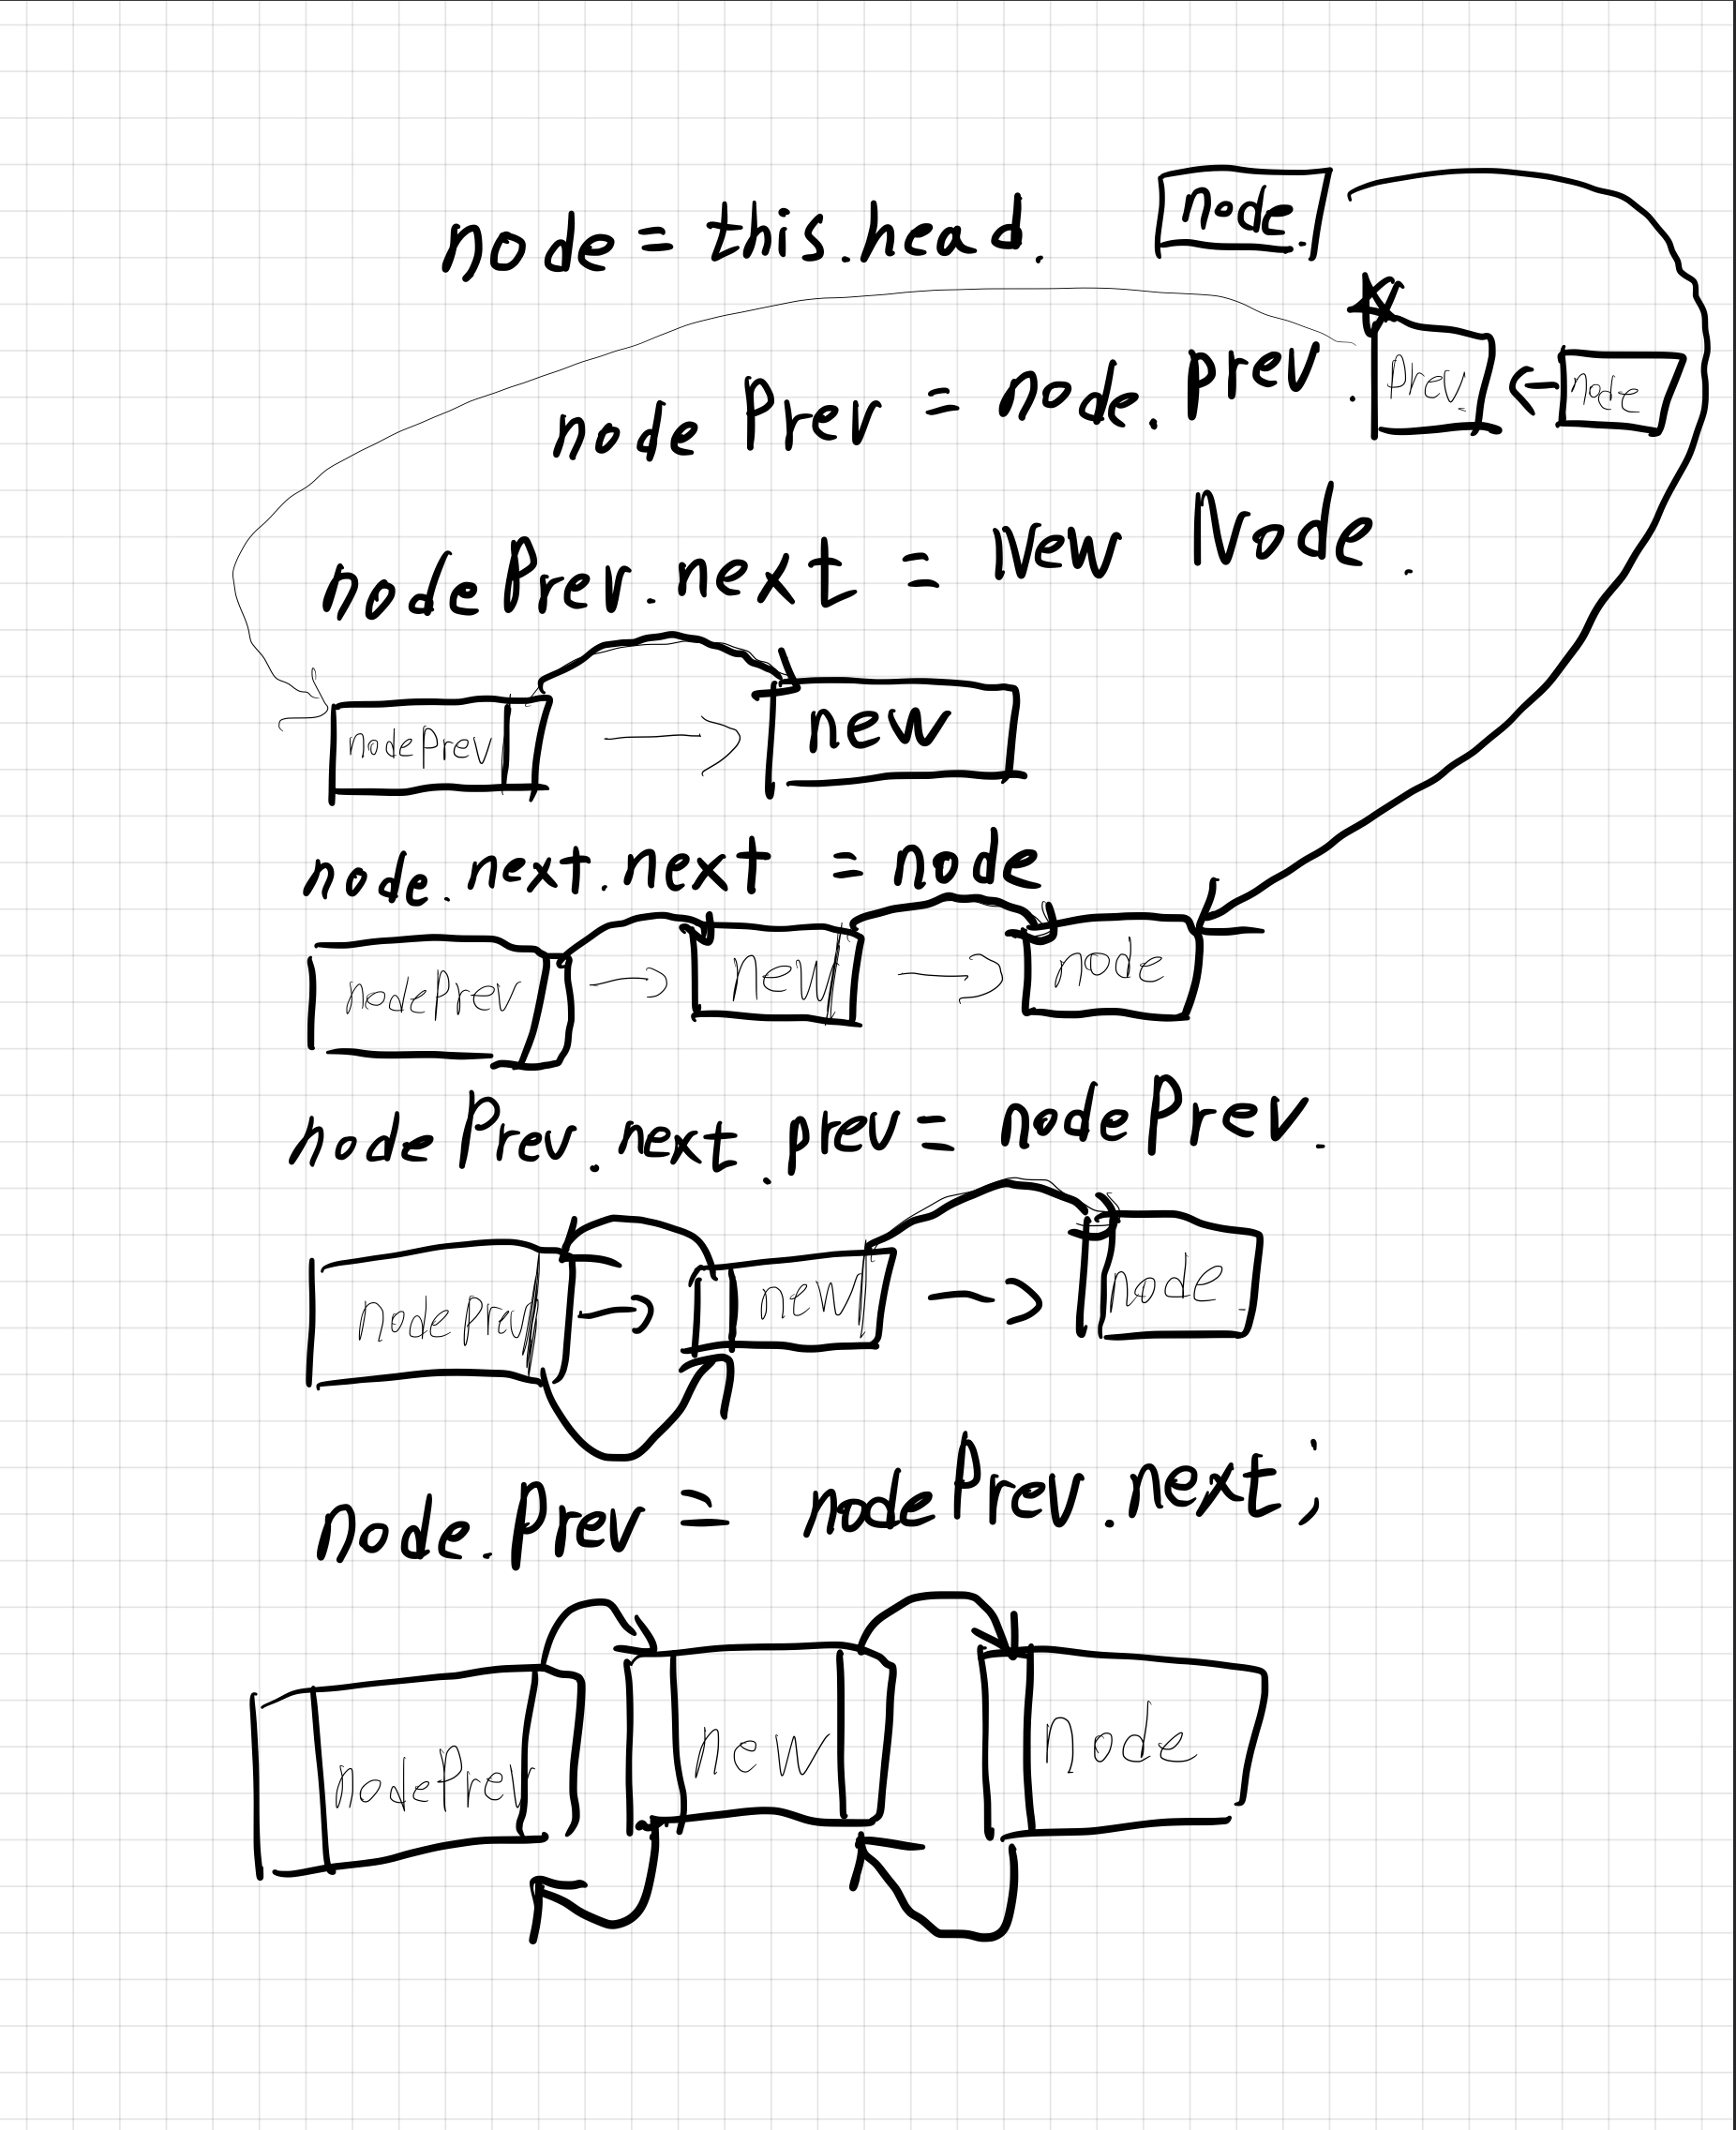 node = this.head.
node.
node Prev = node. prev.
Prev.
node
nodePrev. next = New Node.
nodePrev
new
node. next. next = node
nodePrev
new
node
node Prev. next. prev = nodePrev.
nodePrev
new
node.
node. Prev = nodePrev. next;
nodePrev
new
node